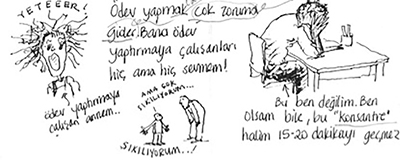 YETEEEER!
ödev yaptırmaya
çalışan annem...
Ödev yapmak çok zoruma
gider. Bana ödev
yaptırmaya çalışanları
hiç ama hiç sevmem!
AMA ÇOK
SIKILIYORUM...
SIKILIYORUM...!
Bu ben değilim. Ben
olsam bile, bu "konsantre"
halim 15-20 dakikayı geçmez